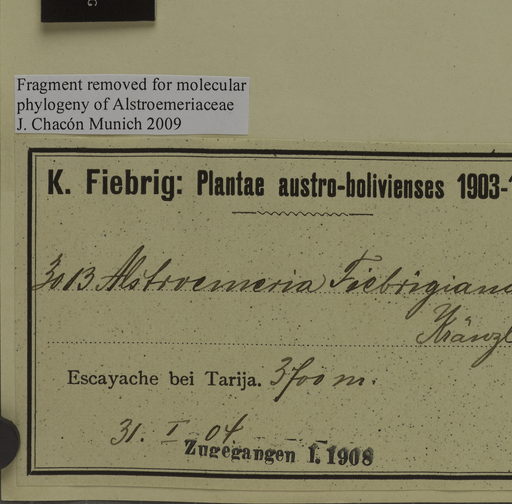 Fragment removed for molecular
phylogeny of Alstroemeriaceae
J. Chacón Munich 2009
K. Fiebrig: Plantae austro-bolivienses 1903-
3013 Alstroemeria Fiebrigiana
Kränzl
Escayache bei Tarija. 3700 m.
31. I 04.
Zugegangen 1. 1908